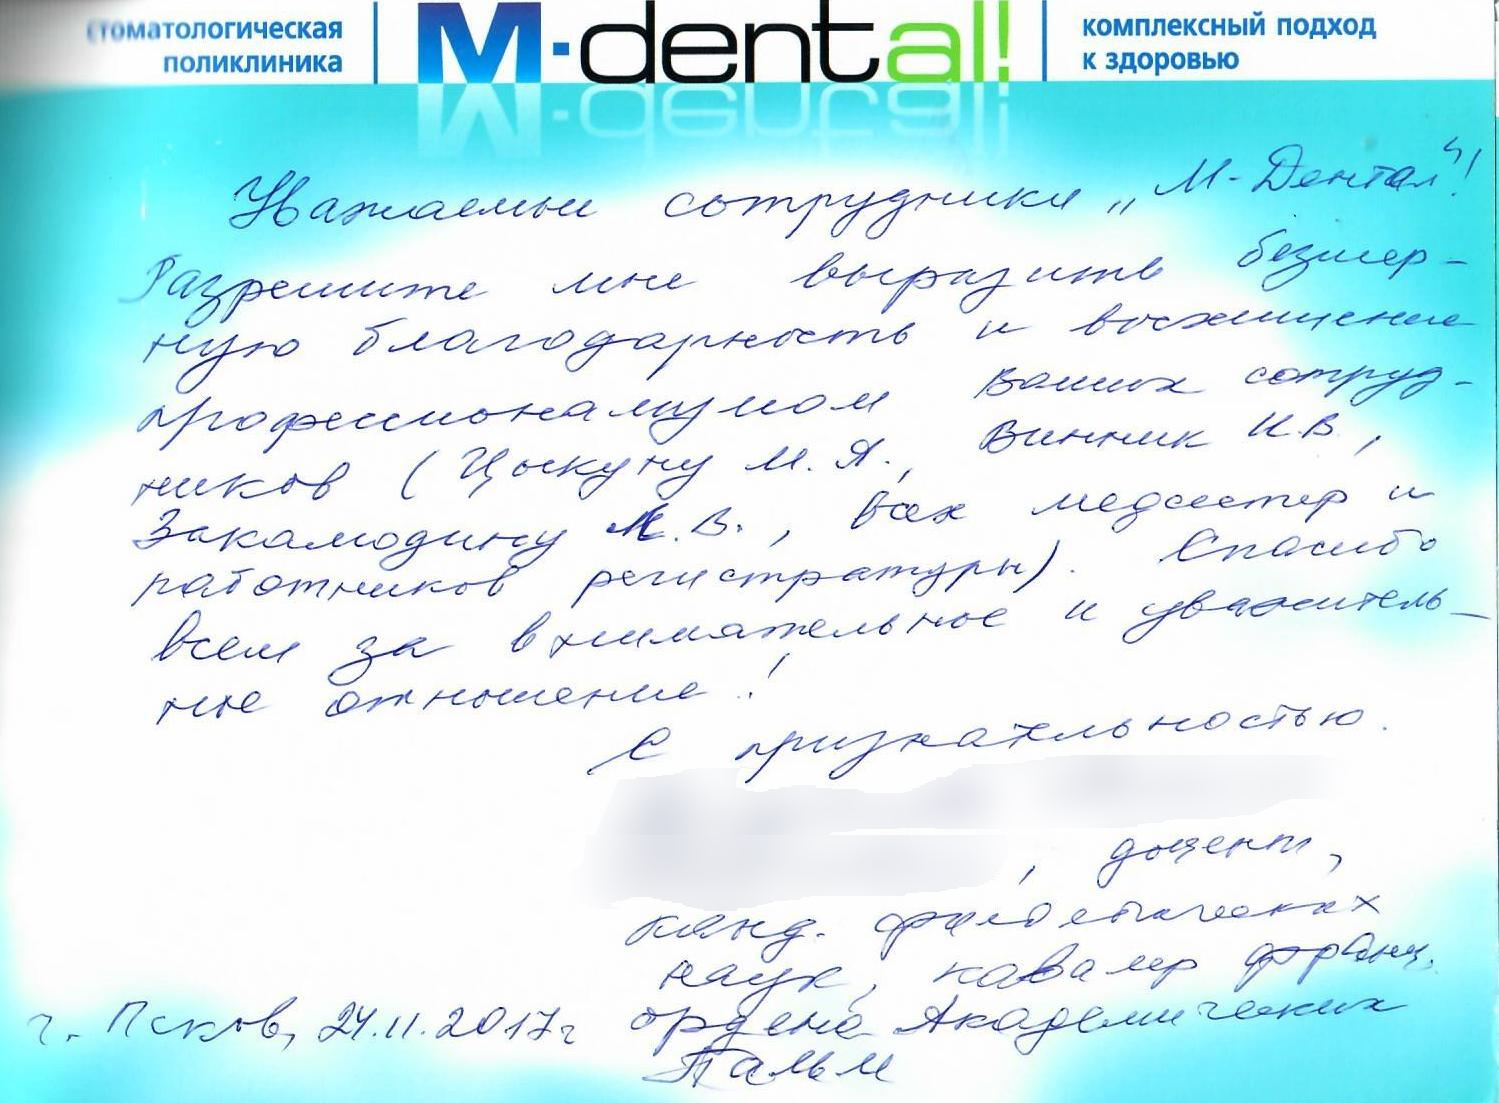 стоматологическая
поликлиника
M-dental!
комплексный подход
к здоровью
Уважаемые сотрудники „М-Дентал"!
Разрешите мне выразить безмер-
ную благодарность и восхищение
профессионализмом Ваших сотруд-
ников (Цыкуну М. Я., Винник И.В.,
Закамодину М.В., всех медсестер и
работников регистратуры). Спасибо
всем за внимательное и уважитель-
ное отношение!
С признательностью.
, доцент,
канд. филологических
наук, кавалер франц.
г. Псков, 24.11.2017г ордена Академических
Пальм